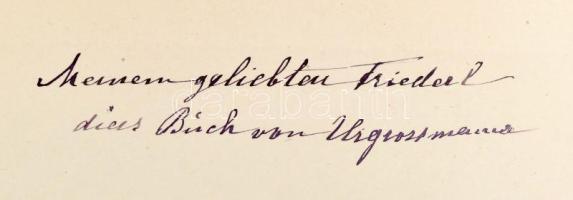 Meinem geliebten Friederl
dies Buch von Urgrossmama
darabanth